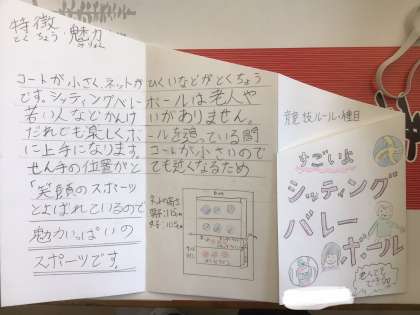 特徴・魅力
とくちょう みりょく
コートが小さく、ネットがひくいなどがとくちょう
です。シッティングバレーボールは老人や
若い人などかんけいがありません。
だれでも楽しくボールを追っている間
に上手になります。コートが小さいので
せん手の位置がとても近くなるため
「笑顔のスポーツ
とよばれているので
魅力いっぱいの
スポーツです。
競技ルール・種目
すごいよ
シッティング
バレー
ボール